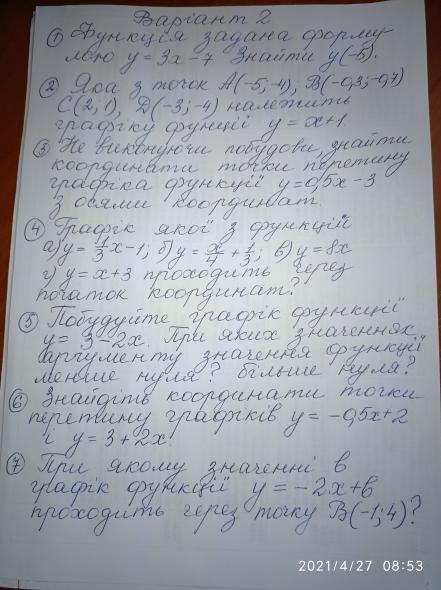 Варіант 2
① Функція задана форму-
лою y = 3x - 7 Знайти y(-5).
② Яка з точок A(-5;-4), B(-0,3;-0,7)
C(2;1), D(-3;-4) належить
графіку фунції y = x+1
③ Не виконуючи побудови, знайти
координати точки перетину
графіка функції y=0,5x-3
з осями координат.
④ Графік якої з функцій
а) y = 1/3 x - 1; б) y = x/4 + 1/3; в) y = 8x
г) y = x+3 проходить через
початок координат?
⑤ Побудуйте графік функції
y = 3-2x. При яких значеннях
аргументу значення функції
менше нуля? більше нуля?
⑥ Знайдіть координати точки
перетину графіків y = -0,5x+2
і y = 3 + 2x.
⑦ При якому значенні в
графік функції y = -2x+b
проходить через точку B(-1;4)?
2021/4/27 08:53